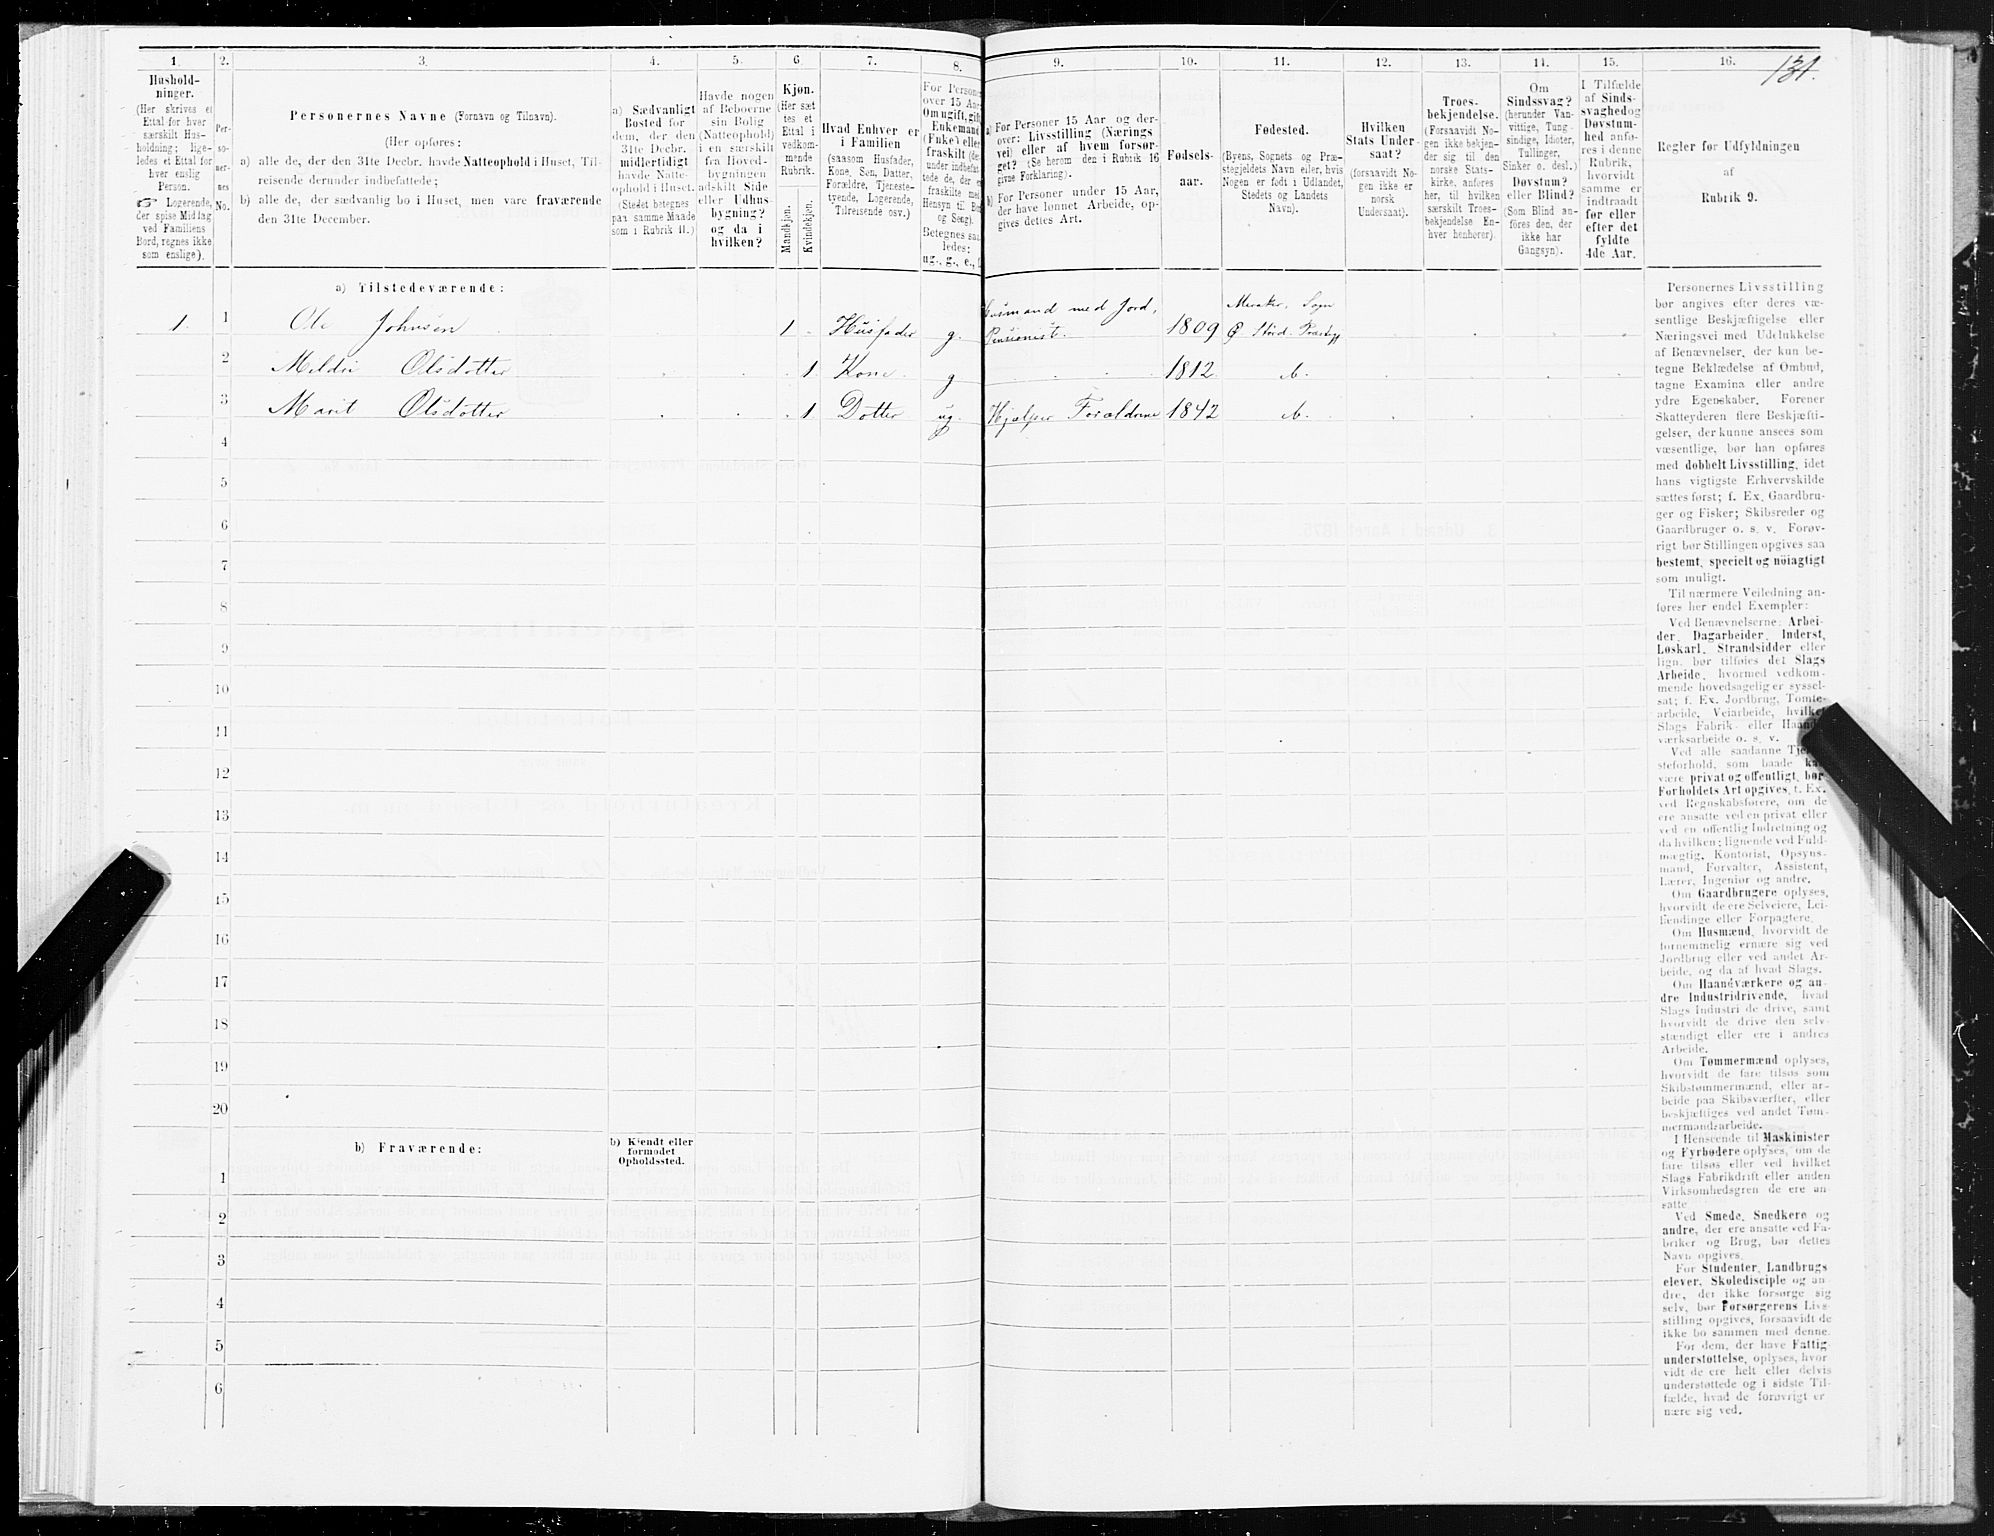 131.
1. 2. 3. 4. 5. 6. 7. 8. 9. 10. 11. 12. 13. 14. 15. 16.
Hushold-
ninger.
(Her skrives et
Ettal for hver
særskilt Hus-
holdning; lige-
ledes et Ettal for
hver enslig
Person.
☞ Logerende,
der spise Middag
ved Familiens
Bord, regnes ikke
som enslige).
Per-
so-
ner-
nes
No.
Personernes Navne (Fornavn og Tilnavn).
(Her opføres:
a) alle de, der den 31te Decbr. havde Natteophold i Huset, Til-
reisende derunder indbefattede;
b) alle de, der sædvanlig bo i Huset, men vare fraværende
den 31te December.
a) Sædvanligt
Bosted for
dem, der den
31te Decbr.
midlertidigt
havde Natte-
ophold i Huset.
(Stedet betegnes
paa samme Maade
som i Rubrik 11.)
Havde nogen
af Beboerne
sin Bolig
(Natteophold)
i en særskilt
fra Hoved-
bygningen
adskilt Side
eller Udhus-
bygning?
og da i
hvilken?
Kjøn.
(Her sæt
tes et
Ettal i
vedkom-
mende
Rubrik.
Mandkjøn.
Kvindekjøn.
Hvad Enhver er
i Familien
(saasom Husfader,
Kone, Søn, Datter,
Forældre, Tjeneste-
tyende, Logerende,
Tilreisende osv.)
For Personer
over 15 Aar
Om ugift, gift,
Enkemand
(Enke) eller
fraskilt
Betegnes saa-
ledes:
ug., g., e., f.
a) For Personer 15 Aar og der-
over: Livsstilling (Nærings
vei) eller af hvem forsør-
get? (Se herom den i Rubrik 16
givne Forklaring).
b) For Personer under 15 Aar,
der have lønnet Arbeide, op-
gives dettes Art.
Fødsels-
aar.
Fødested.
(Byens, Sognets og Præ-
stegjeldets Navn eller, hvis
Nogen er født i Udlandet,
Stedets og Landets
Navn).
Hvilken
Stats Under-
saat?
(forsaavidt No-
gen ikke er
norsk
Undersaat).
Troes-
bekjendelse.
(Forsaavidt No-
gen ikke bekjen-
der sig til den
norske Stats-
kirke, anføres
her, til hvilken
særskilt Troes-
bekjendelse En-
hver henhører).
Om
Sindssvag?
(herunder Van-
vittige, Tung-
sindige, Idioter,
Tullinger,
Sinker o. desl.)
Døvstum?
eller Blind?
(Som Blind an-
føres den, der
ikke har
Gangsyn).
I Tilfælde
af Sinds-
svaghed og
Døvstum-
hed anfø-
res i denne
Rubrik,
hvorvidt
samme er
indtraadt
før eller
efter det
fyldte
4de Aar.
Regler for Udfyldningen
af
Rubrik 9.
a) Tilstedeværende:
1. 1 Ole Johnsen 1 Husfader g. Husmand med Jord, Pensionist. 1809 Meraker Sogn Ø. Stord. Præstegj
2 Meldri Olsdotter 1 Kone g 1812
3 Marit Olsdotter 1 Dotter ug. Hjælper Forældrene 1842
4
5
6
7
8
9
10
11
12
13
14
15
16
17
18
19
20
b) Fraværende:
b) Kjendt eller
formodet
Opholdssted.
1
2
3
4
5
6
Personernes Livsstilling
bør angives efter deres væ-
sentlige Beskjæftigelse eller
Næringsvei med Udelukkelse
af Benævnelser, der kun be-
tegne Beklædelse af Ombud,
tagne Examina eller andre
ydre Egenskaber. Forener
Skatteyderen flere Beskjæfti-
gelser, der kunne ansees som
væsentlige, bør han opføres
med dobbelt Livsstilling, idet
hans vigtigste Erhvervskilde
sættes først; f. Ex. Gaardbru-
ger og Fisker; Skibsreder og
Gaardbruger o. s. v. Forøv-
rigt bør Stillingen opgives saa
bestemt, specielt og nøiagtigt
som muligt.
Til nærmere Veiledning an-
føres her endel Exempler:
Ved Benævnelserne: Arbei-
der, Dagarbeider, Inderst,
Løskarl, Strandsidder eller
lign. bør tilføies det Slags
Arbeide, hvormed vedkom-
mende hovedsagelig er syssel-
sat; f. Ex. Jordbrug, Tomte-
arbeide, Veiarbeide, hvilket
Slags Fabrik- eller Haand-
værksarbeide o. s. v.
Ved alle saadanne Tjene-
steforhold, som baade kan
være privat og offentligt, bør
Forholdets Art opgives, f. Ex.
ved Regnskabsførere, om de
ere ansatte ved en privat eller
ved en offentlig Indretning og
da hvilken; lignende ved Fuld-
mægtig, Kontorist, Opsyns-
mand, Forvalter, Assistent,
Lærer, Ingeniør og andre.
Om Gaardbrugere oplyses,
hvorvidt de ere Selveiere, Lei-
lændinge eller Forpagtere.
Om Husmænd, hvorvidt de
fornemmelig ernære sig ved
Jordbrug eller ved andet Ar-
beide, og da af hvad Slags.
Om Haandværkere og an-
dre Industridrivende, hvad
Slags Industri de drive, samt
hvorvidt de drive den selv-
stændigt eller ere i andres
Arbeide.
Om Tømmermænd oplyses,
hvorvidt de fare tilsøs som
Skibstømmermænd, eller ar-
beide paa Skibsværfter, eller
beskjæftiges ved andet Tøm-
mermandsarbeide.
I Henseende til Maskinister
og Fyrbødere oplyses, om de
fare tilsøs eller ved hvilket
Slags Fabrikdrift eller anden
Virksomhedsgren de ere an-
satte
Ved Smede, Snedkere og
andre, der ere ansatte ved Fa-
briker og Brug, bør dettes
Navn opgives.
For Studenter, Landbrugs
elever, Skoledisciple og an-
dre, der ikke forsørge sig
selv, bør Forsørgerens Livs-
stilling opgives, forsaavidt de
ikke bo sammen med denne.
For dem, der have Fattig-
understøttelse, oplyses, hvor
vidt de ere helt eller delvis
understøttede og i sidste Til-
fælde, hvad de forøvrigt er
nære sig ved.